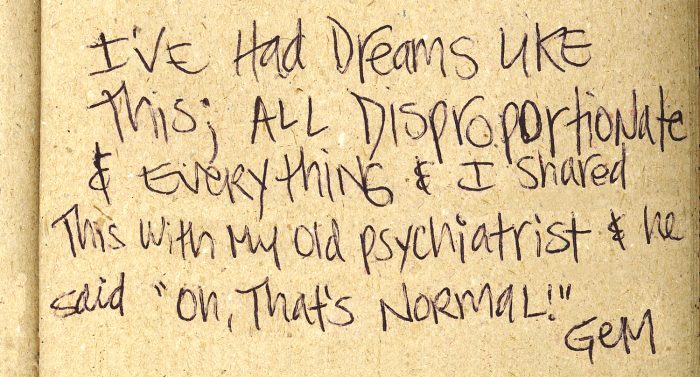 I'VE Had Dreams LIKE
This; ALL DISproportionate
& EVERYthiNG & I shared
This with My Old psychiatrist & he
said "Oh, That's NORMaL!"
GeM